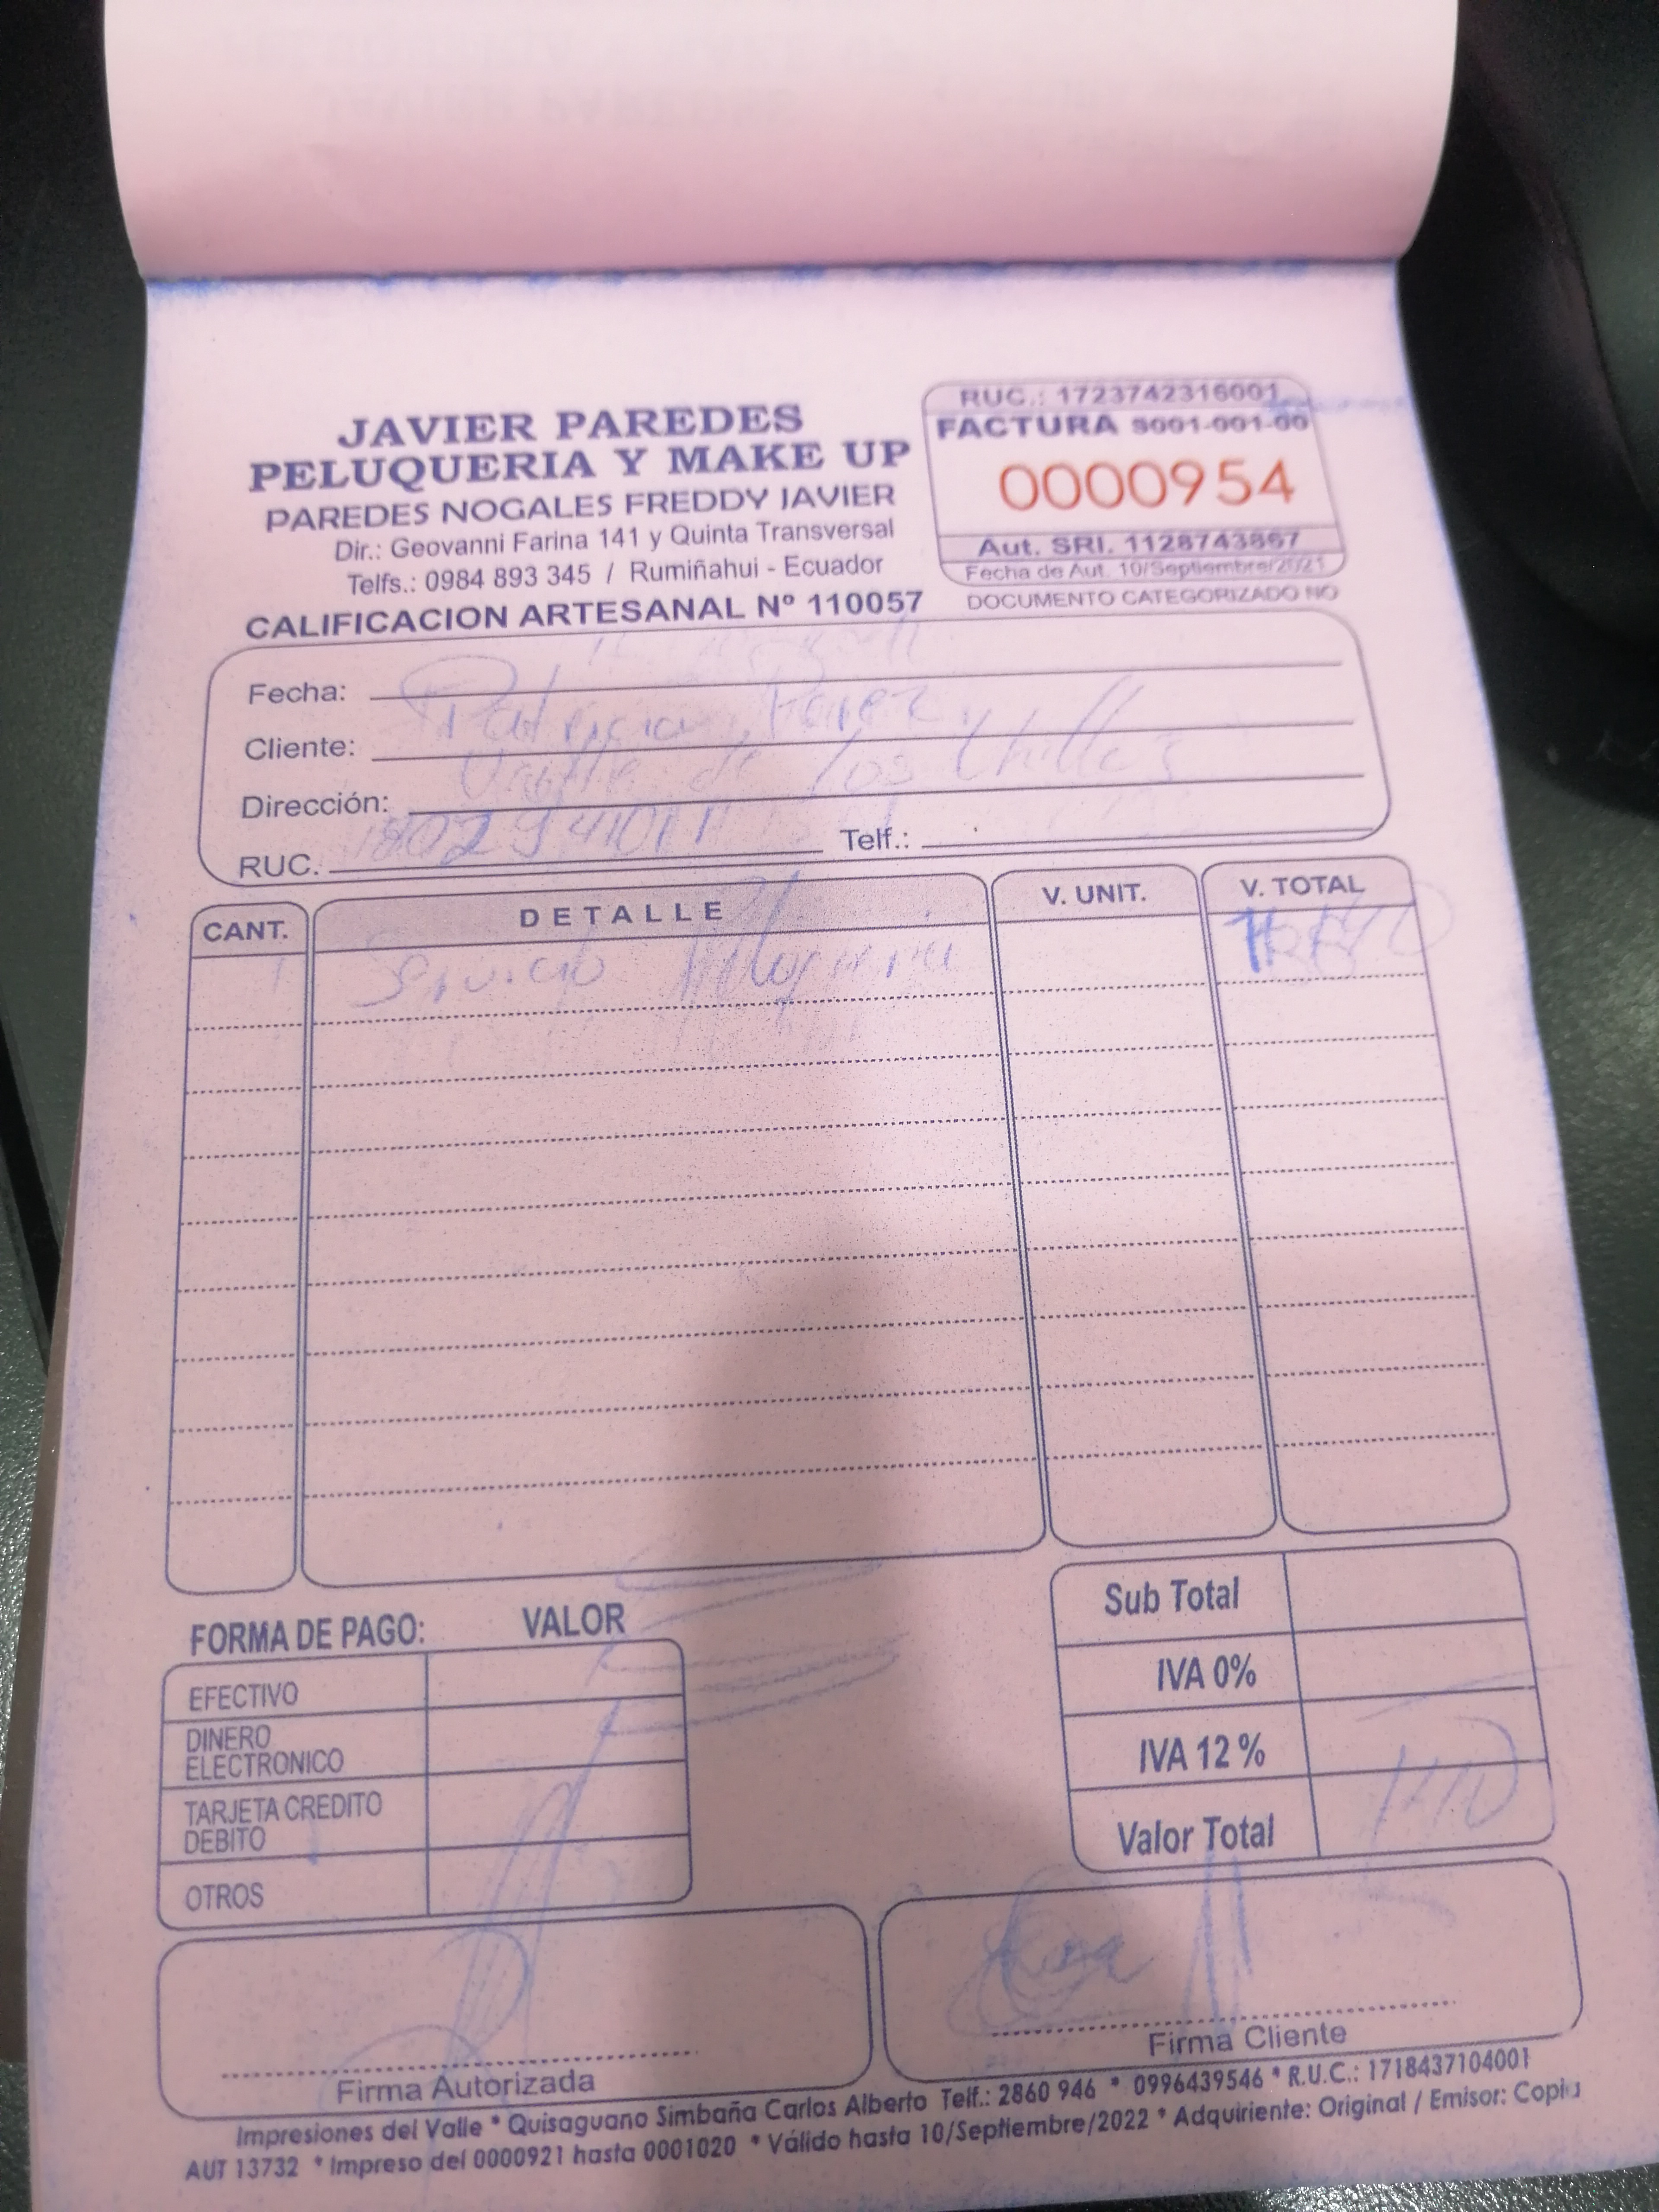 JAVIER PAREDES
PELUQUERIA Y MAKE UP
PAREDES NOGALES FREDDY JAVIER
Dir.: Geovanni Farina 141 y Quinta Transversal
Telfs.: 0984 893 345 / Rumiñahui - Ecuador
CALIFICACION ARTESANAL Nº 110057
RUC.: 1723742316001
FACTURA S001-001-00
0000954
Aut. SRI. 1128743867
Fecha de Aut. 10/Septiembre/2021
DOCUMENTO CATEGORIZADO NO
Fecha:
Cliente: Patricia Perez
Dirección: Valle de los Chillos
RUC. Telf.:
CANT. DETALLE V. UNIT. V. TOTAL
1 Servicio Peluqueria
FORMA DE PAGO: VALOR
EFECTIVO
DINERO
ELECTRONICO
TARJETA CREDITO
DEBITO
OTROS
Sub Total
IVA 0%
IVA 12 %
Valor Total
Firma Autorizada
Firma Cliente
Impresiones del Valle * Quisaguano Simbaña Carlos Alberto Telf.: 2860 946 * 0996439546 * R.U.C.: 1718437104001
AUT 13732 * Impreso del 0000921 hasta 0001020 * Válido hasta 10/Septiembre/2022 * Adquiriente: Original / Emisor: Copia